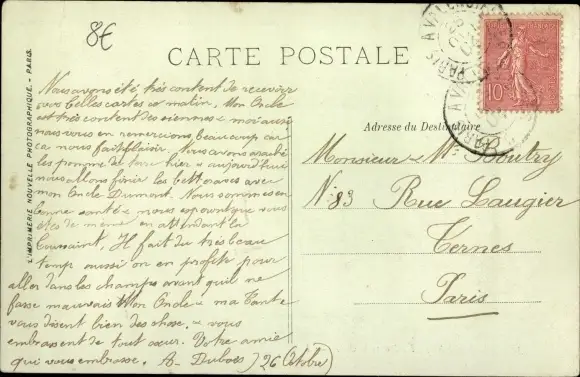 8€
CARTE POSTALE
A VALENCIENNES
PARIS
10
L'IMPRIMERIE NOUVELLE PHOTOGRAPHIQUE. - PARIS.
Nous avons été très content de recevoir
vos belles cartes ce matin, Mon Oncle
est très content des siennes & moi aussi
nous vous en remercions, beaucoup car
ça nous fait plaisir. Nous avons arraché
les pommes de terre hier & aujourd'hui
nous allons finir les betteraves avec
mon Oncle Dumont. Nous sommes en
bonne santé & nous espérons que vous
êtes de même en attendant la
Toussaint, Il fait du très beau
temps aussi on en profite pour
aller dans les champs avant qu'il ne
fasse mauvais Mon Oncle & ma Tante
vous disent bien des chose. & vous
embrassent de tout cœur. Votre amie
qui vous embrasse. A. Dubois
26 (Octobre)
Adresse du Destinataire
Monsieur & Mme Boutry
N: 83 Rue Laugier
Ternes
Paris